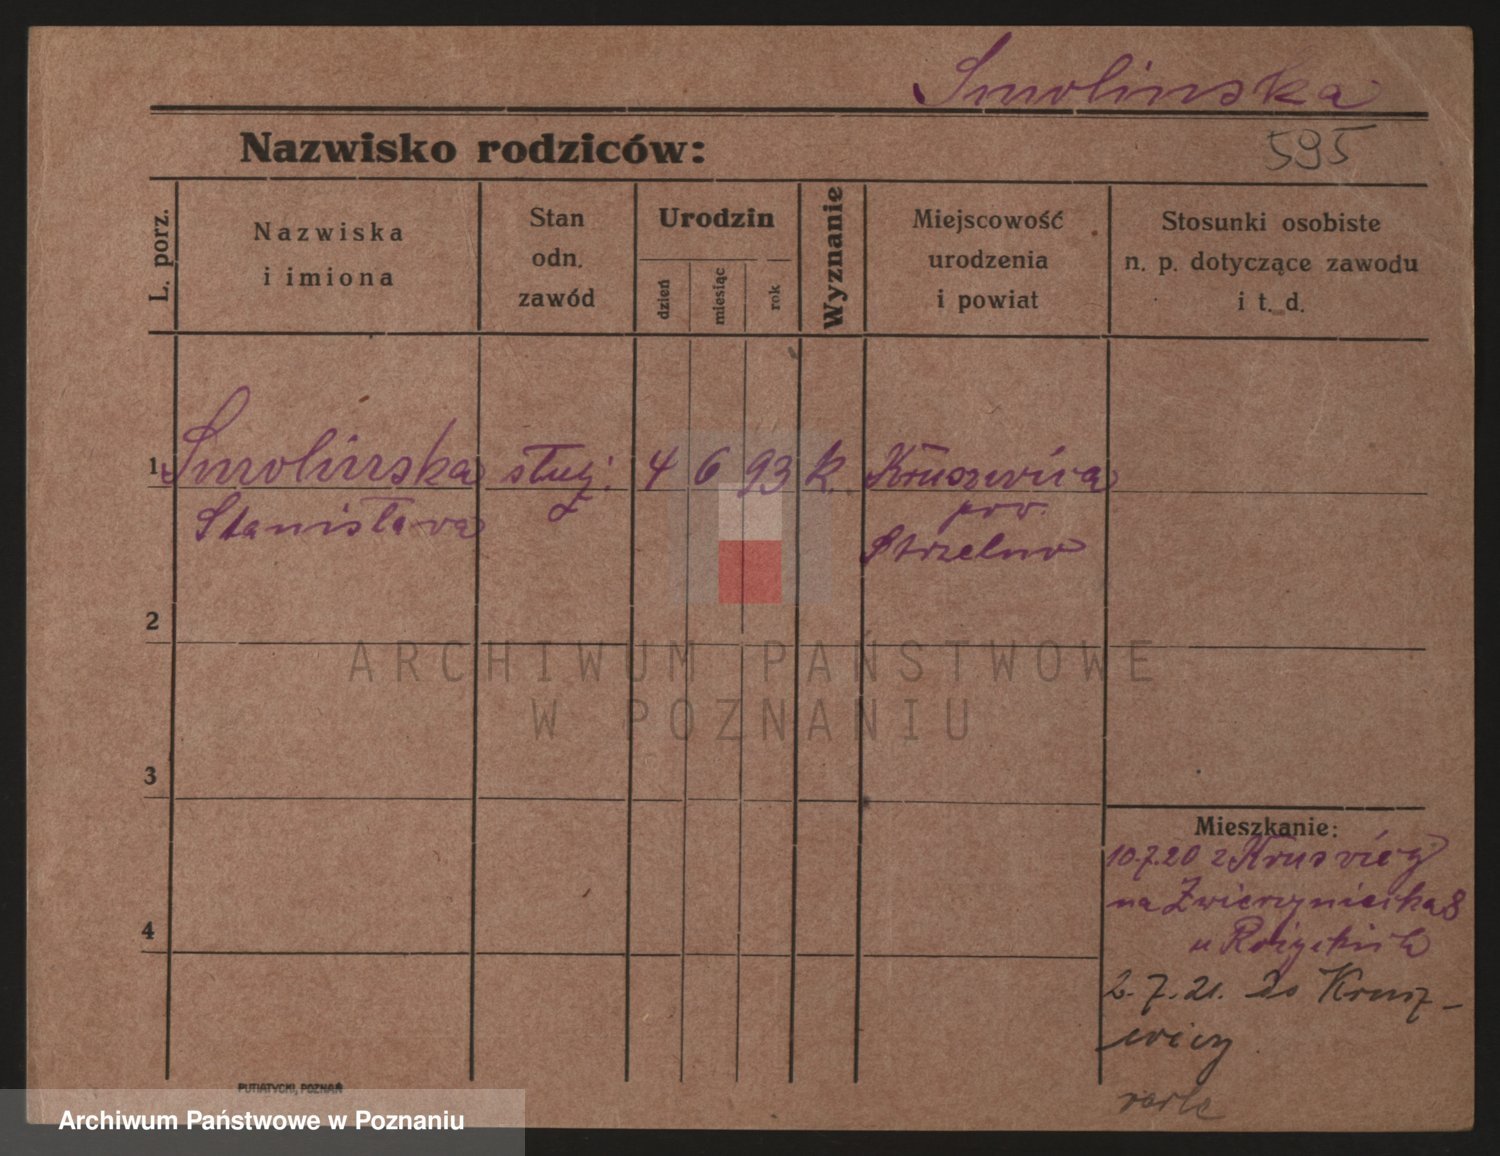 Smolinska
Nazwisko rodziców:
595
L. porz.
Nazwiska
i imiona
Stan
odn.
zawód
Urodzin
dzień
miesiąc
rok
Wyznanie
Miejscowość
urodzenia
i powiat
Stosunki osobiste
n. p. dotyczące zawodu
i t. d.
1 Smolinska służ. 4 6 93 k. Kruszwica
Stanisława pow.
Strzelno
2
ARCHIWUM PAŃSTWOWE
W POZNANIU
3
Mieszkanie:
10.7.20 z Kruświcy
na Zwierzyniecka 8
u
4
2.7.21. do Krusz-
wicy
PUTIATYCKI, POZNAŃ
Archiwum Państwowe w Poznaniu